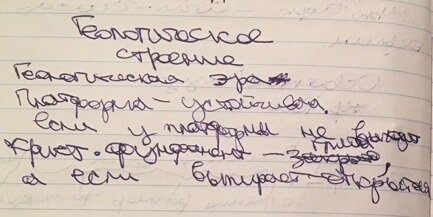 Геологическое
строение
Геологическая эра
Платформа - устойчивая.
если у платформы не выходит
крист. фундамент -
а если выпирает - открытая